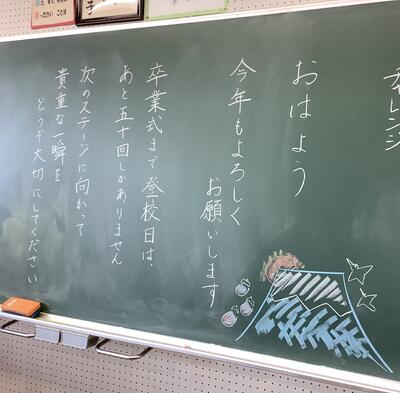 チャレンジ
おはよう
今年もよろしく
お願いします
卒業式まで登校日は、
あと五十回しかありません
次のステージに向かって
貴重な一瞬を
どうぞ大切にしてください